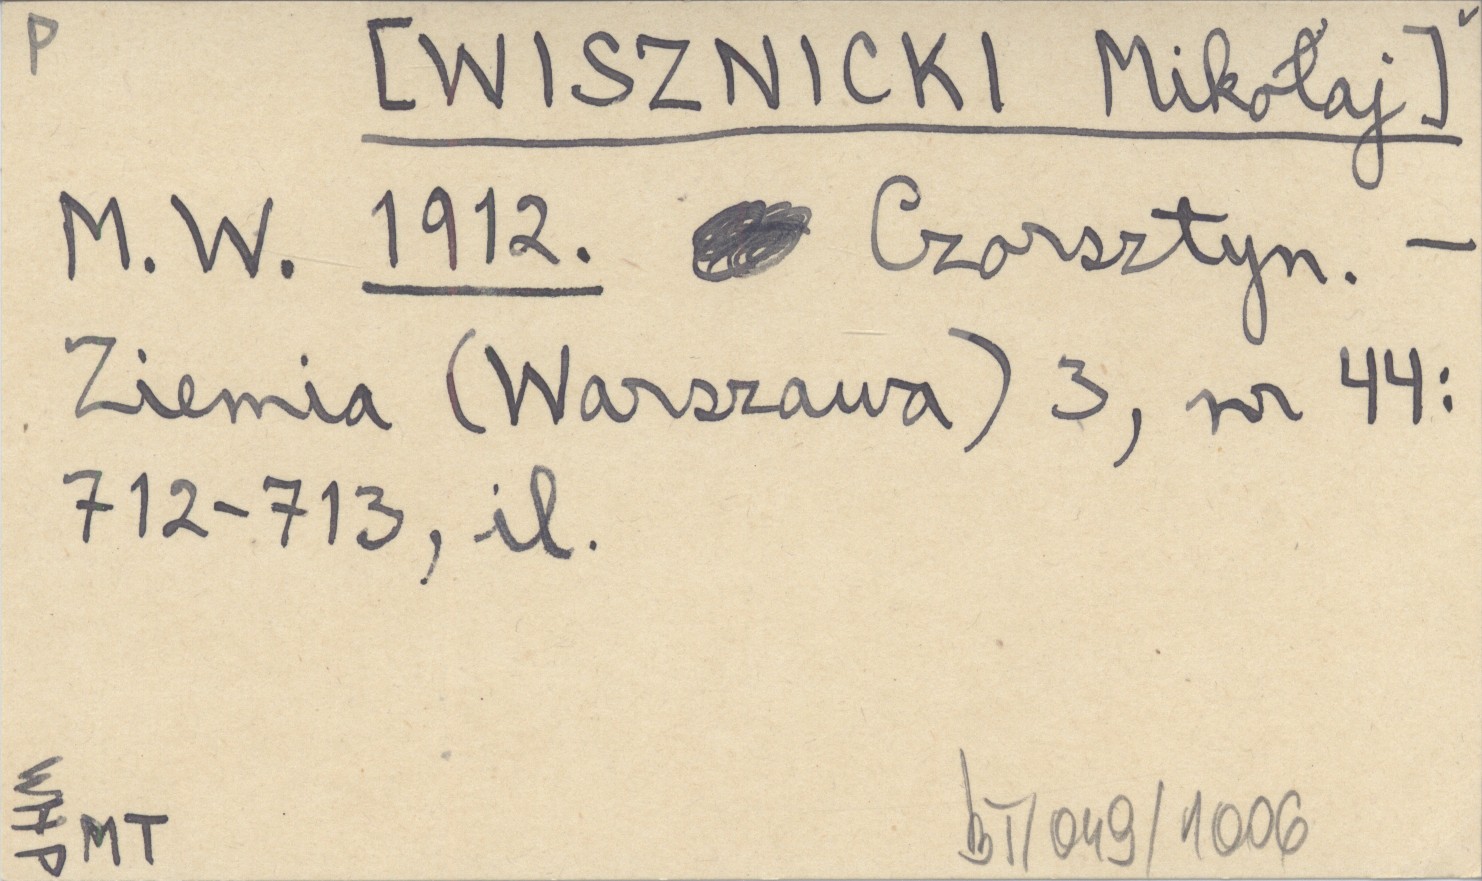 P
[WISZNICKI Mikołaj]
M.W. 1912. Czorsztyn. —
Ziemia (Warszawa) 3, nr 44:
712-713, il.
WHP
MT
BT/049/1006